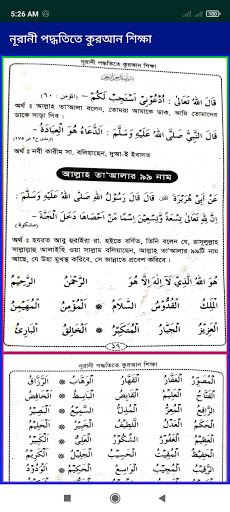 5:26 AM
নূরানী পদ্ধতিতে কুরআন শিক্ষা
নূরানী পদ্ধতিতে কুরআন শিক্ষা
قَالَ اللهُ تَعَالٰى : اُدْعُوْنِىْ اَسْتَجِبْ لَكُمْ –
অর্থ : আল্লাহ তা'আলা বলেন, তোমরা আমাকে ডাক, আমি তোমাদের
ডাকে সাড়া দিব।
قَالَ النَّبِىُّ صَلَّى اللهُ عَلَيْهِ وَسَلَّمَ : اَلدُّعَاءُ هُوَ الْعِبَادَةُ –
অর্থ : নবী কারীম সা. বলিয়াছেন, দুআ-ই ইবাদত
আল্লাহ তা'আলার ৯৯ নাম
عَنْ اَبِىْ هُرَيْرَةَ قَالَ قَالَ رَسُوْلُ اللهِ صَلَّى اللهُ عَلَيْهِ وَسَلَّمَ :
اِنَّ لِلّٰهِ تَعَالٰى تِسْعَةً وَّتِسْعِيْنَ اِسْمًا مَنْ اَحْصَاهَا دَخَلَ الْجَنَّةَ –
অর্থ : হযরত আবু হুরাইরা রা. হইতে বর্ণিত, তিনি বলেন যে, রাসূলুল্লাহ
সাল্লাল্লাহু আলাইহি ওয়া সাল্লাম বলিয়াছেন, আল্লাহ তা'আলার ৯৯টি নাম
আছে, যে উহা মুখস্থ করিবে, সে জান্নাতে প্রবেশ করিবে।
هُوَ اللهُ الَّذِىْ لَا اِلٰهَ اِلَّا هُوَ الرَّحْمٰنُ الرَّحِيْمُ
الْمَلِكُ الْقُدُّوْسُ السَّلَامُ * الْمُؤْمِنُ الْمُهَيْمِنُ
الْعَزِيْزُ الْجَبَّارُ الْمُتَكَبِّرُ * الْخَالِقُ الْبَارِئُ
নূরানী পদ্ধতিতে কুরআন শিক্ষা
الْمُصَوِّرُ الْغَفَّارُ الْقَهَّارُ * الْوَهَّابُ الرَّزَّاقُ
الْفَتَّاحُ الْعَلِيْمُ الْقَابِضُ * الْبَاسِطُ الْخَافِضُ
الرَّافِعُ الْمُعِزُّ الْمُذِلُّ * السَّمِيْعُ الْبَصِيْرُ
الْحَكَمُ الْعَدْلُ اللَّطِيْفُ * الْخَبِيْرُ الْحَلِيْمُ
الْعَظِيْمُ الْغَفُوْرُ الشَّكُوْرُ * الْعَلِىُّ الْكَبِيْرُ
الْحَفِيْظُ الْمُقِيْتُ الْحَسِيْبُ * الْجَلِيْلُ الْكَرِيْمُ
الرَّقِيْبُ الْمُجِيْبُ الْوَاسِعُ * الْحَكِيْمُ الْوَدُوْدُ